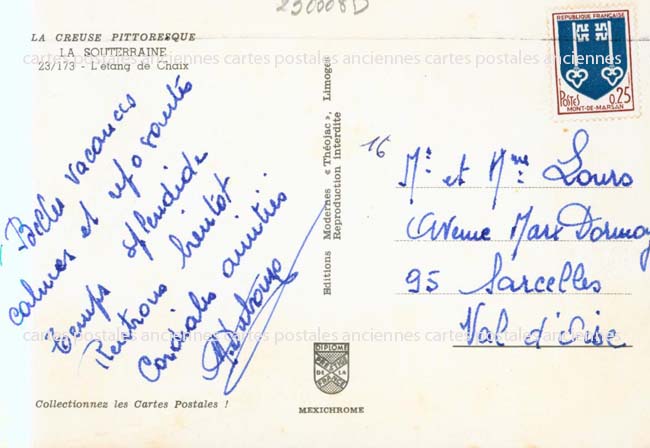 25C008D
LA CREUSE PITTORESQUE
LA SOUTERRAINE
23/173 - L'étang de Chaix
Belles vacances
calmes et reposantes
Temps splendide
Rentrons bientôt
Cordiales amitiés
Editions Modernes « Théojac », Limoges
Reproduction interdite
REPUBLIQUE FRANÇAISE
POSTES
0,25
MONT-DE-MARSAN
16
Mr et Mme Lours
Avenue Marx Dormoy
95 Sarcelles
Val d'Oise
cartes postales anciennes cartes postales anciennes cartes postales anciennes
cartes postales anciennes cartes postales anciennes cartes postales anciennes
DIPLOME
DE LA
FRANCE
MEXICHROME
Collectionnez les Cartes Postales !